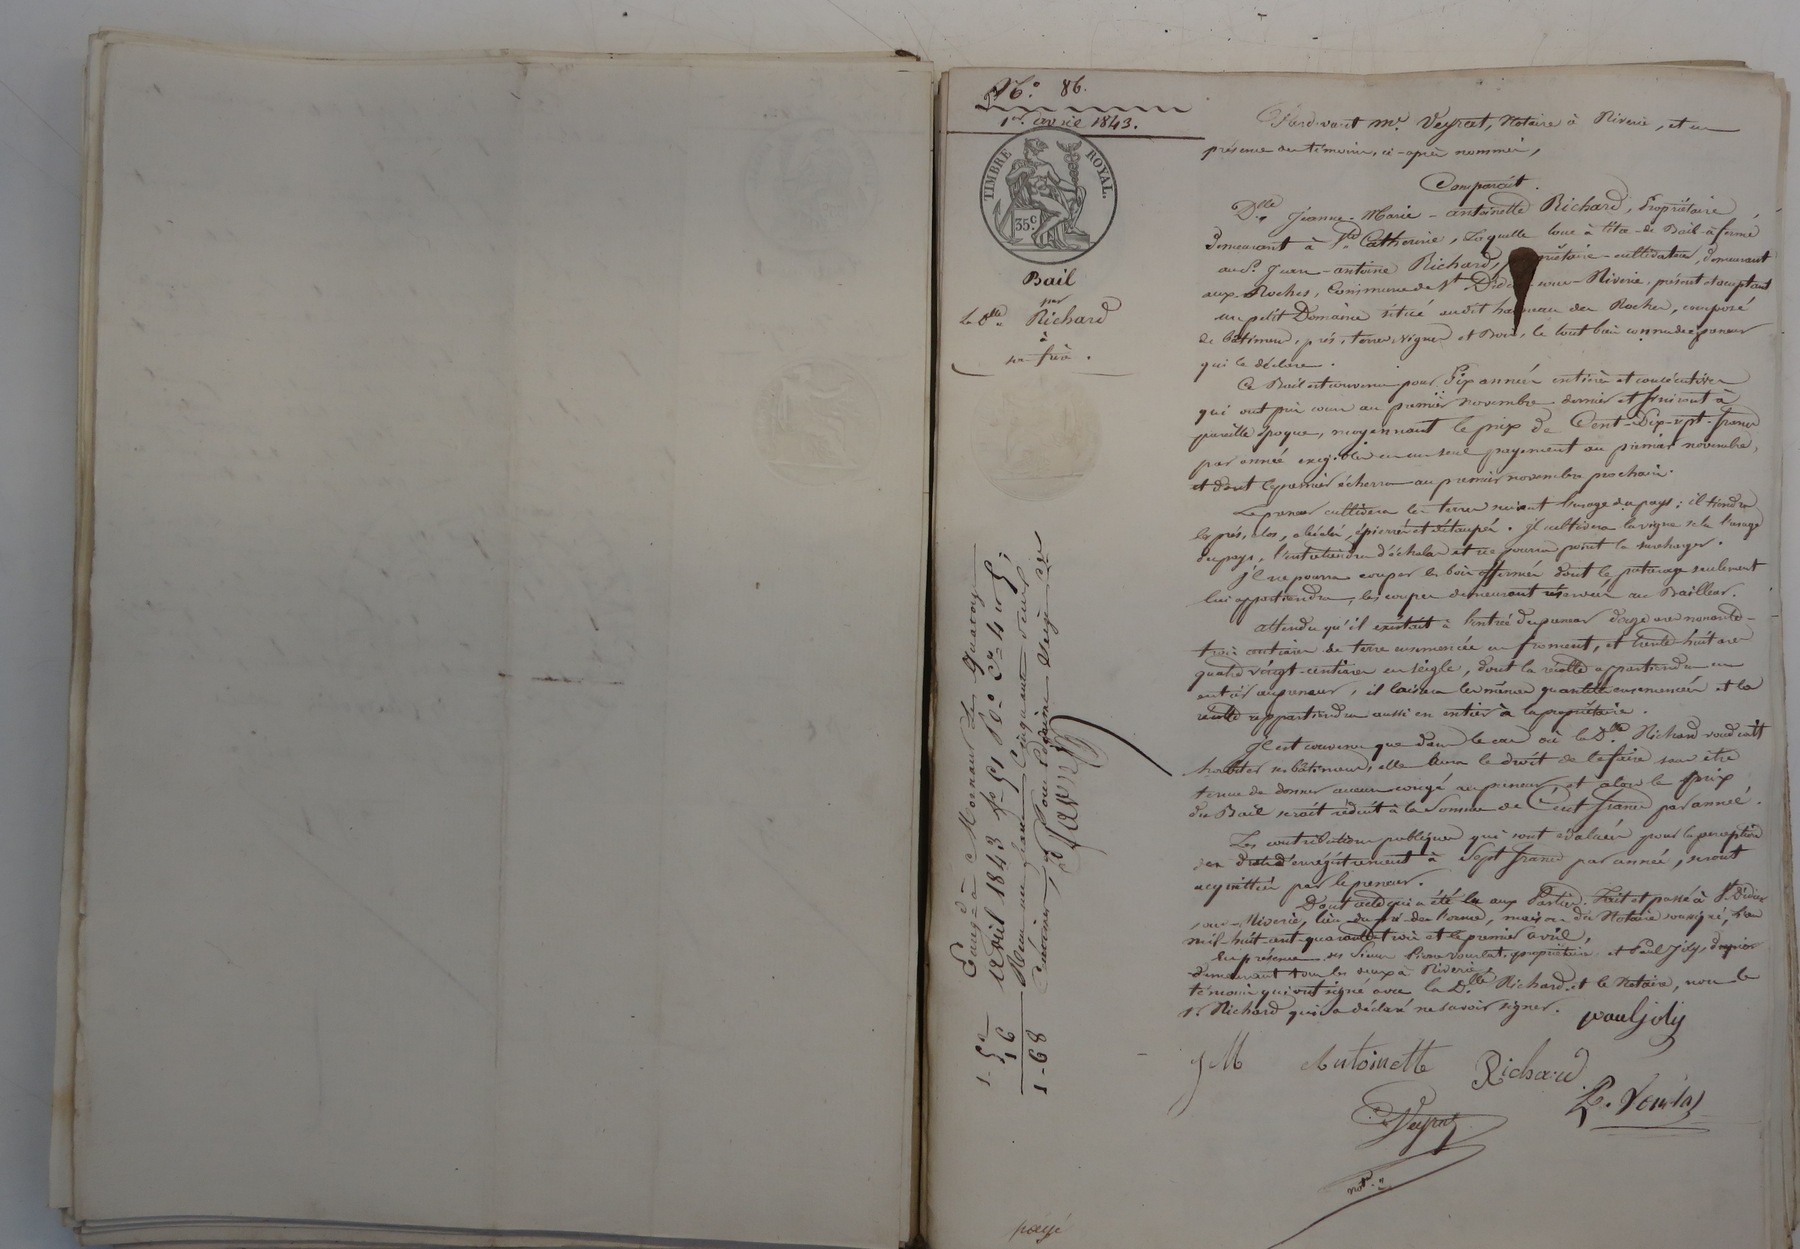 N.° 86.
1er avril 1843.
TIMBRE ROYAL.
35 c.
Bail
par
la Dlle Richard
à
son frère.
Pardevant Me. Veyrat, Notaire à Riverie, et en
présence des témoins, ci-après nommés,
Comparaît.
Dlle Jeanne-Marie-antoinette Richard, Propriétaire
demeurant à Ste Catherine, Laquelle loue à titre de Bail à ferme
au Sr. Jean-antoine Richard, propriétaire-cultivateur, demeurant
aux Roches, Commune de St. Didier-sous-Riverie, présent et acceptant
un petit Domaine situé audit hameau des Roches, composé
de bâtimens, prés, terres, vignes et Bois, le tout bien connu du preneur
qui le déclare.
Ce Bail est convenu pour Six années entières et consécutives
qui ont pris cours au premier novembre dernier et finiront à
pareille époque, moyennant le prix de Cent-Dix-sept-francs
par année exigible en un seul payement au premier novembre,
et dont le premier écherra au premier novembre prochain.
Le preneur cultivera les terres suivant l'usage du pays; il tiendra
les prés, clos, épierrés et détaupés. Il cultivera la vigne selon l'usage
du pays, l'entretiendra d'échalas et ne pourra point la surcharger.
Il ne pourra couper les bois affermés dont le paturage seulement
lui appartiendra, les coupes demeurant réservées au Bailleur.
attendu qu'il existait à l'entrée du preneur douze ares nonante-
trois centiares de terre ensemencée en froment, et trente-huit ares
quatre vingt centiares en seigle, dont la récolte appartiendra en
entier au preneur, il laissera les mêmes quantités ensemencées et la
récolte appartiendra aussi en entier à la propriétaire.
Il est convenu que dans le cas où la Dlle Richard voudrait
habiter ses bâtimens, elle aura le droit de le faire sans être
tenue de donner aucun congé au preneur, et alors le prix
du Bail serait réduit à la somme de Cent francs par année.
Les contributions publiques qui sont évaluées pour la perception
des droits d'enregistrement à Sept francs par année, seront
acquittées par le preneur.
Dont acte qui a été lu aux Parties. Fait et passé à St. Didier
sous-Riverie, lieu du pré-de-l'orme, maison du Notaire soussigné, L'an
mil-huit-cent-quarante trois et le premier avril,
En présence des Sieurs Pierre Vourlat, propriétaire et Paul Joly,
demeurant tous les deux à Riverie
témoins qui ont signé avec la Dlle Richard et le Notaire, non le
Sr. Richard qui a déclaré ne savoir signer.
paul joly
J M Antoinette Richard
P. Vourlat
Veyrat
notre
Enreg.é à Mornant Le Quatorze
avril 1843 f° 51 R° Cs 4 et 5;
Reçu un franc Cinquante deux
centimes, et pour décime Seize cen
1-52
16
1-68
payé